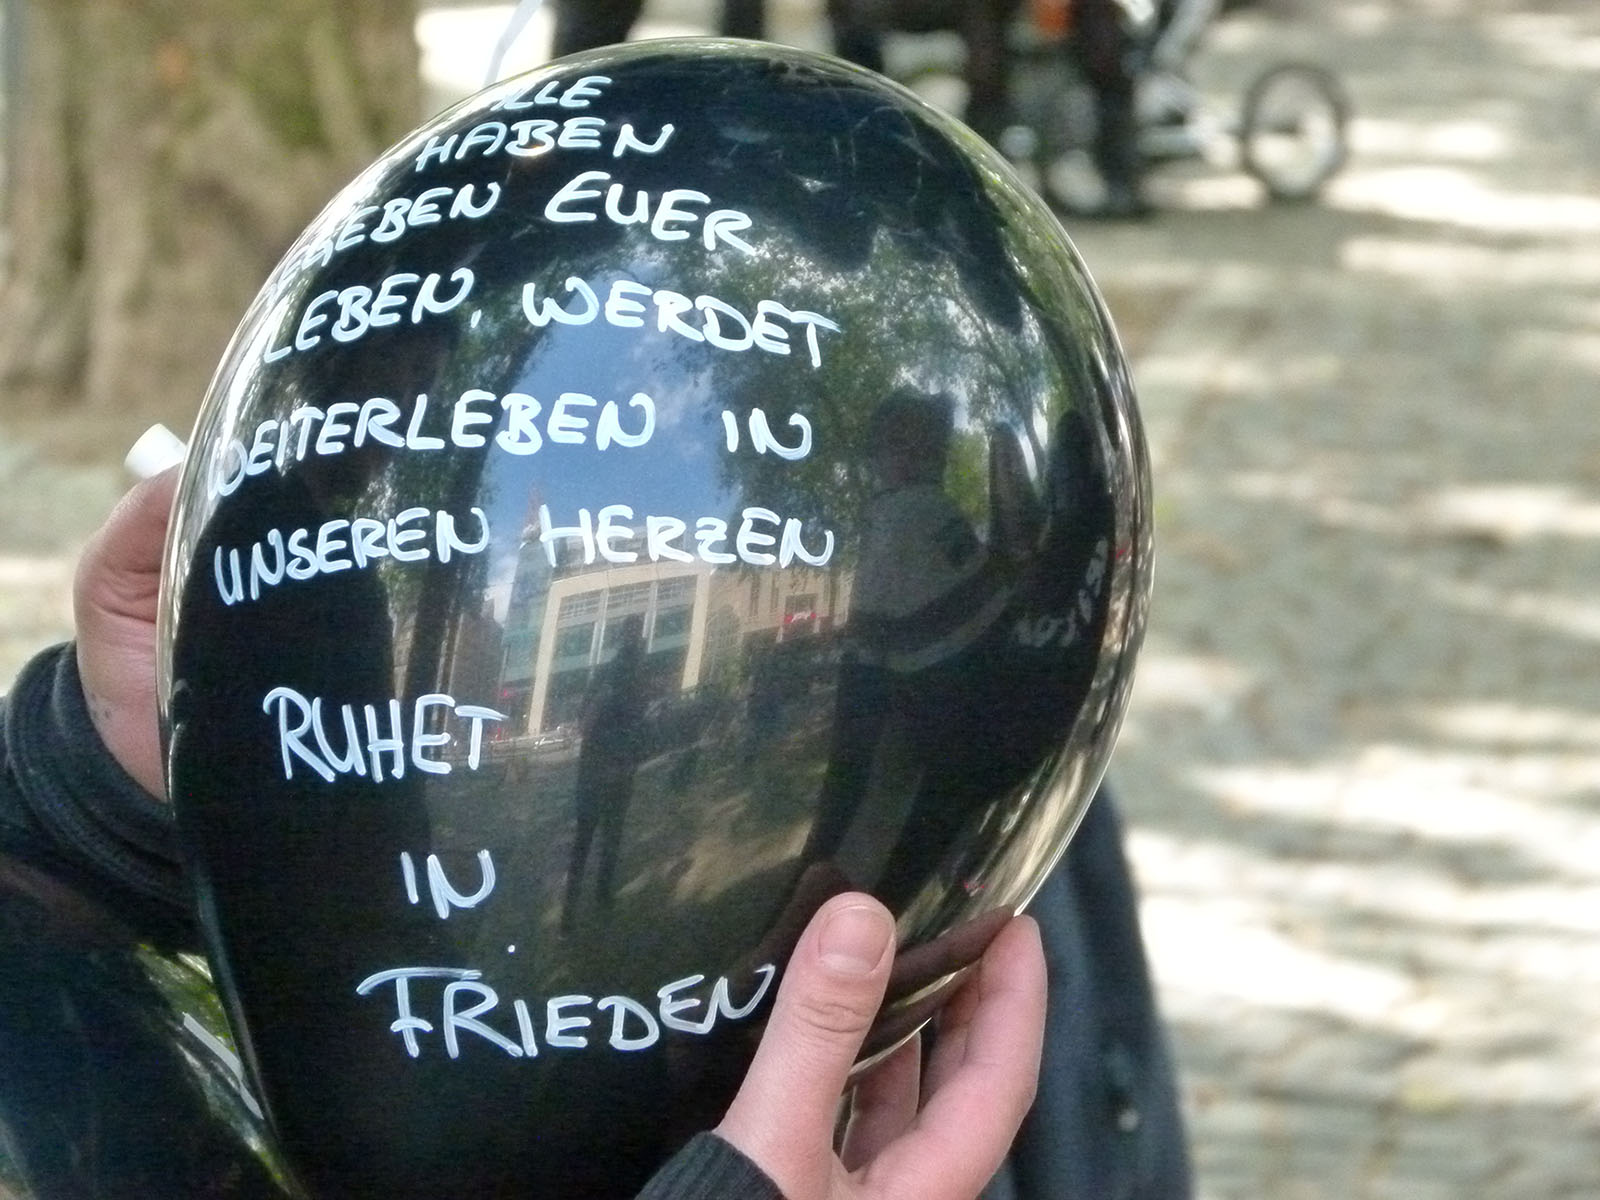 ALLE
HABEN
GEGEBEN EUER
LEBEN, WERDET
WEITERLEBEN IN
UNSEREN HERZEN
RUHET
IN
FRIEDEN